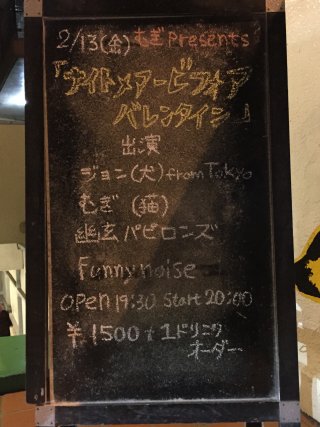 2/13(金) むぎ Presents
「ナイトメアービフォア
バレンタイン」
出演
ジョン(犬) from Tokyo
むぎ (猫)
幽玄パビロンズ
Funnynoise
OPen 19:30 Start 20:00
¥1500+1ドリンク
オーダー